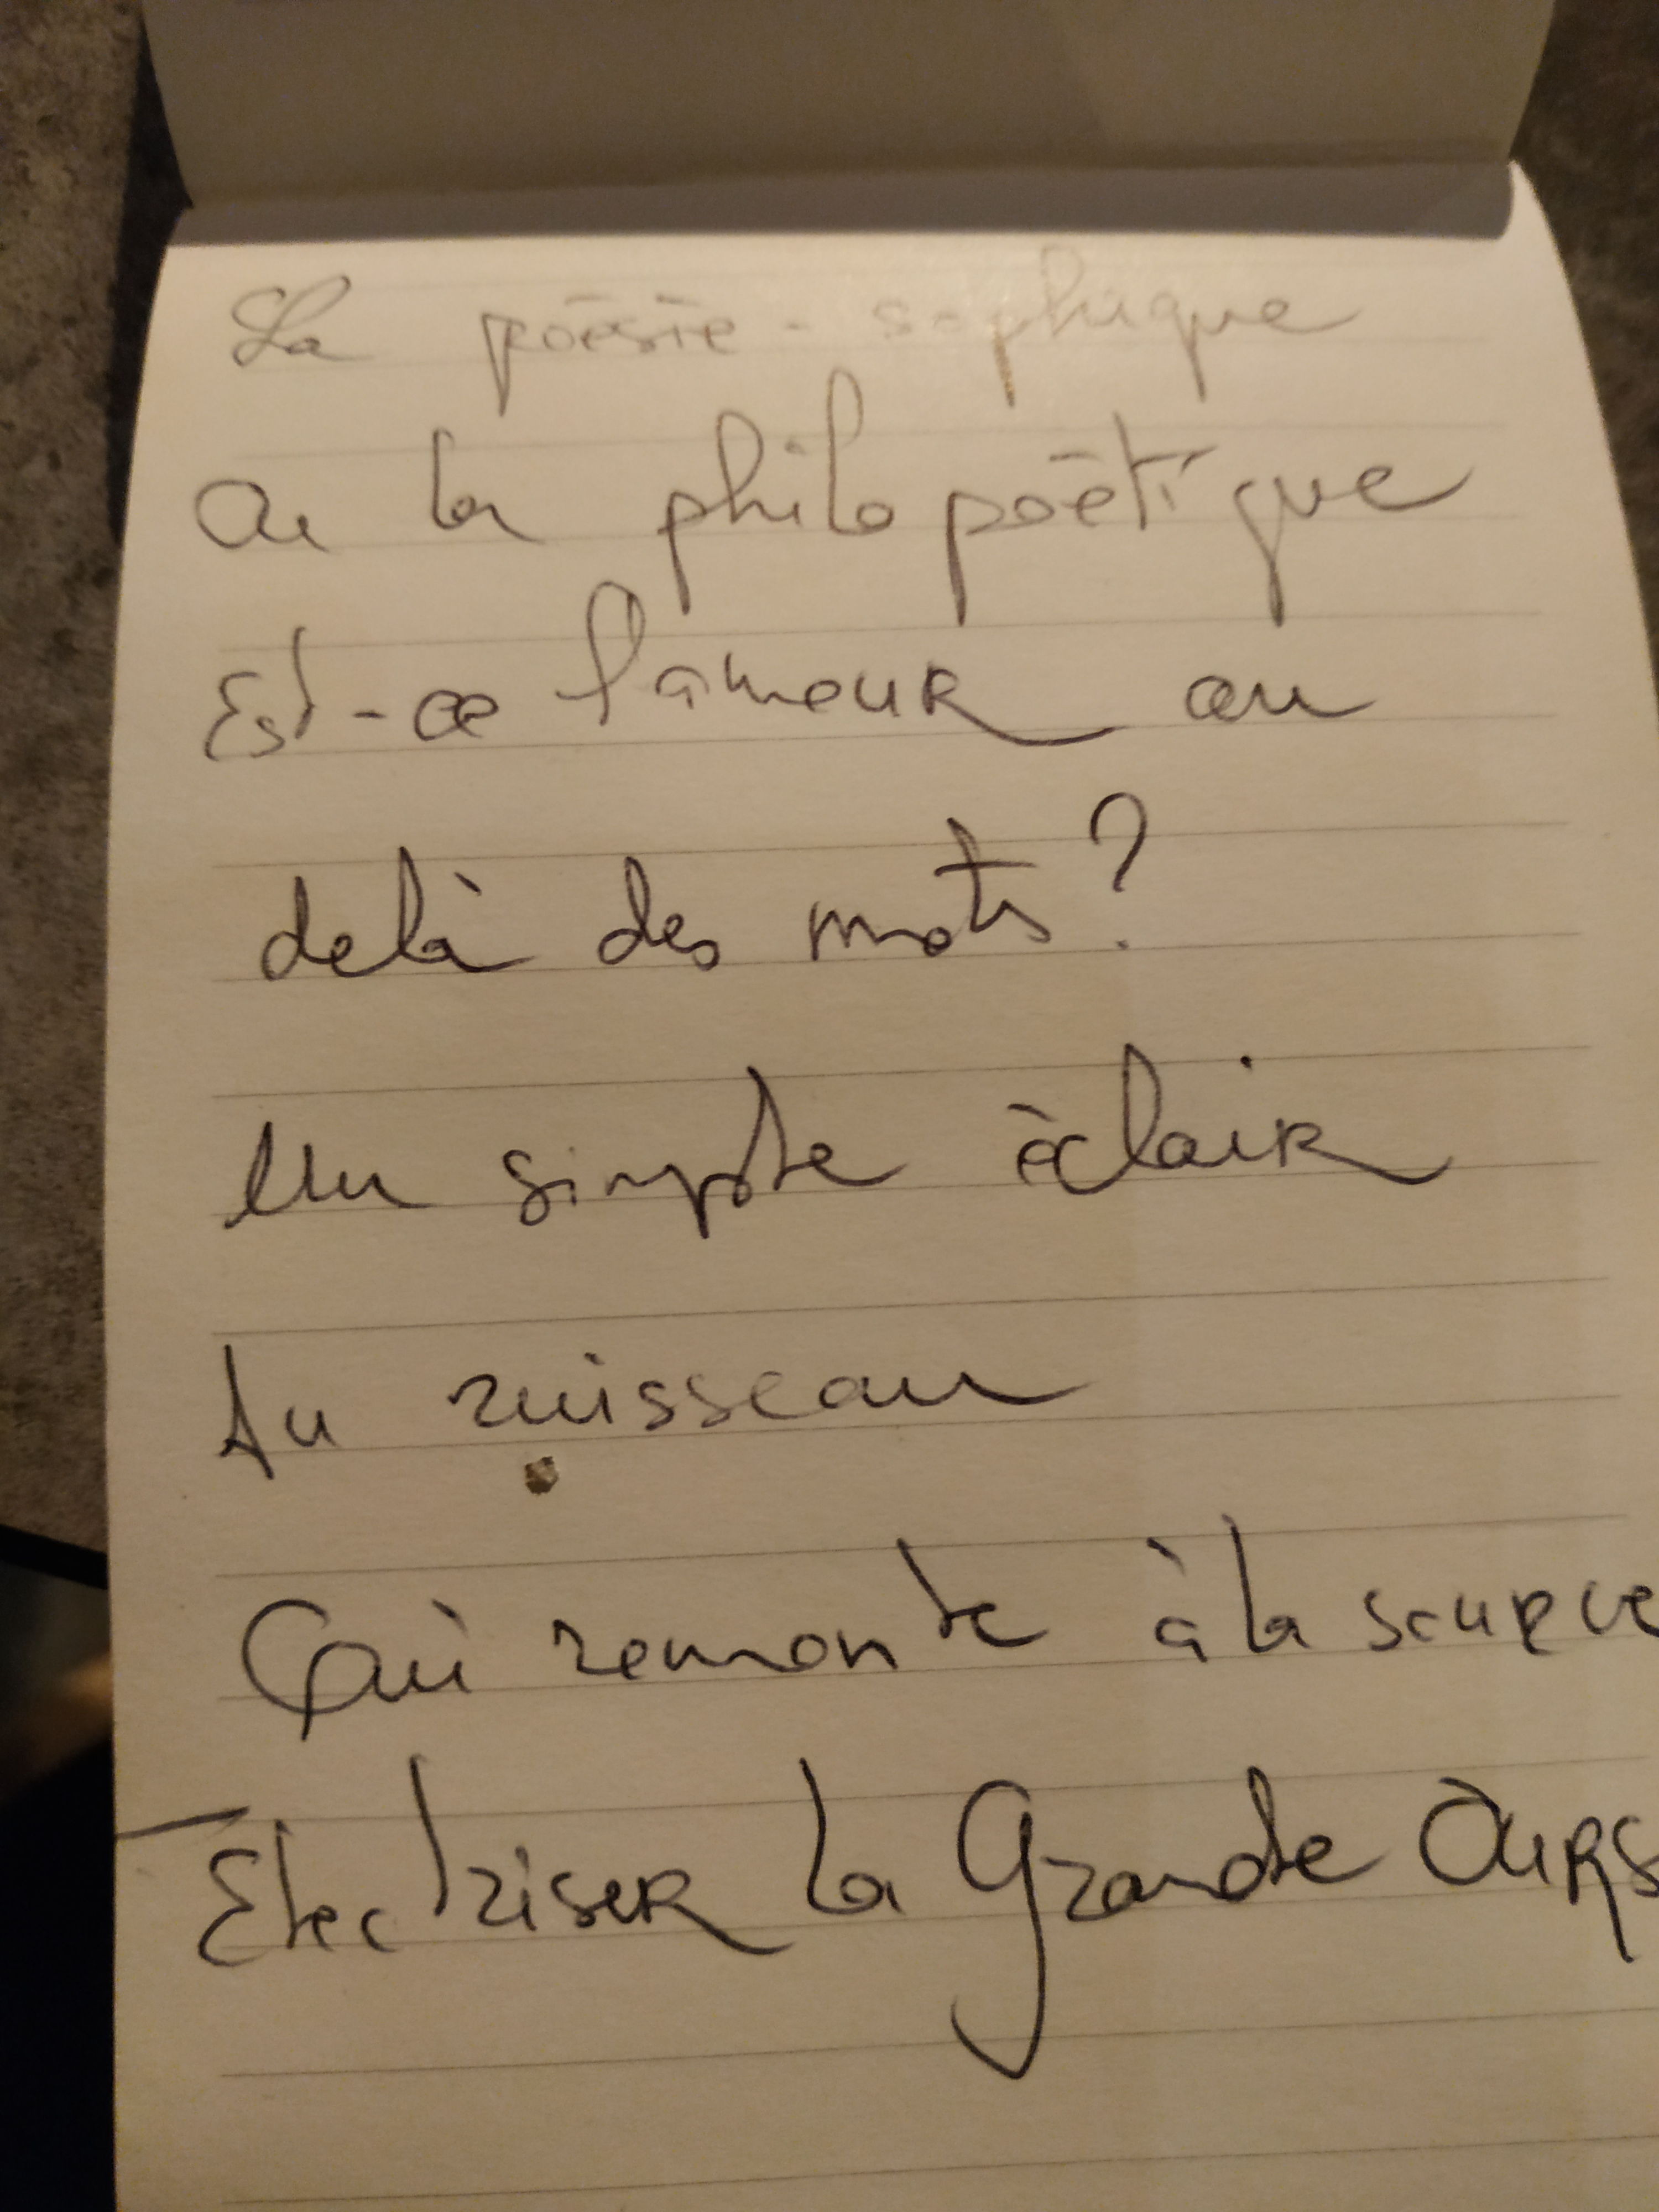 La poésie-sophique
Ou la philo poétique
Est-ce l'amour au
delà des mots?
Un simple éclair
Au ruisseau
Qui remonte à la source
Electriser la Grande Ours